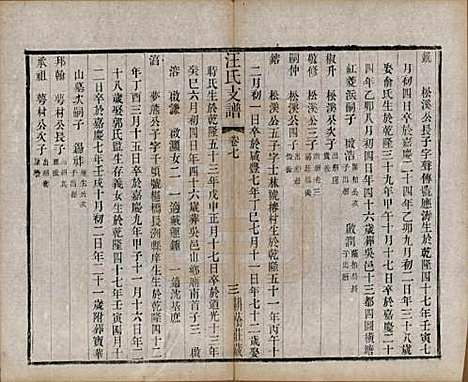 鋌 松溪公長子字聲傳號應濤生於乾隆四十七年壬寅七
月初四日卒於嘉慶二十四年乙卯九月初二日年三十八
娶俞氏生於乾隆三十九年甲午十一月十六日卒於嘉慶二十
四年乙卯八月初四日年四十六葬吳邑十三都四圖橫塘
紅菱浜嗣子 啟浩 啟潤
椒升 松溪公次子
敬修 松溪公三子
嗣仲 松溪公四子
鎔 松溪公五子字士林號椿村生於乾隆五十一年丙午十
二月初一日卒於咸豐七年丁巳七月初一日年七十二娶
汪氏支譜 卷七
三 耕蔭莊藏
蔣氏生於乾隆五十三年戊申正月十七日卒於道光十三年
癸巳六月初四日年四十六葬吳邑山鄉
溶 啟謙 啟 女二 一適戴 一適沈基庶
濱 夢熊公子字千頃號樾橋長洲縣庠生生於乾隆四十二
年丁酉三月十五日卒於嘉慶九年甲子十一月初十日年二
十八歲娶郭氏監生存義女生於乾隆四十七年壬寅四月十
二日卒於嘉慶七年壬戌十月初二日年二十一歲附葬寶華
山墓次嗣子 錫祚
邦翰 蕚村公次子
承祖 蕚村公次子